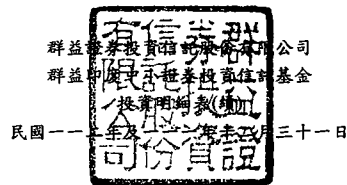 群益證券投資信託股份有限公司
群益印度中小證券投資信託基金
投資明細表(續)
民國一一二年及 年十二月三十一日
群益證
券投資
信託股份
有限公司